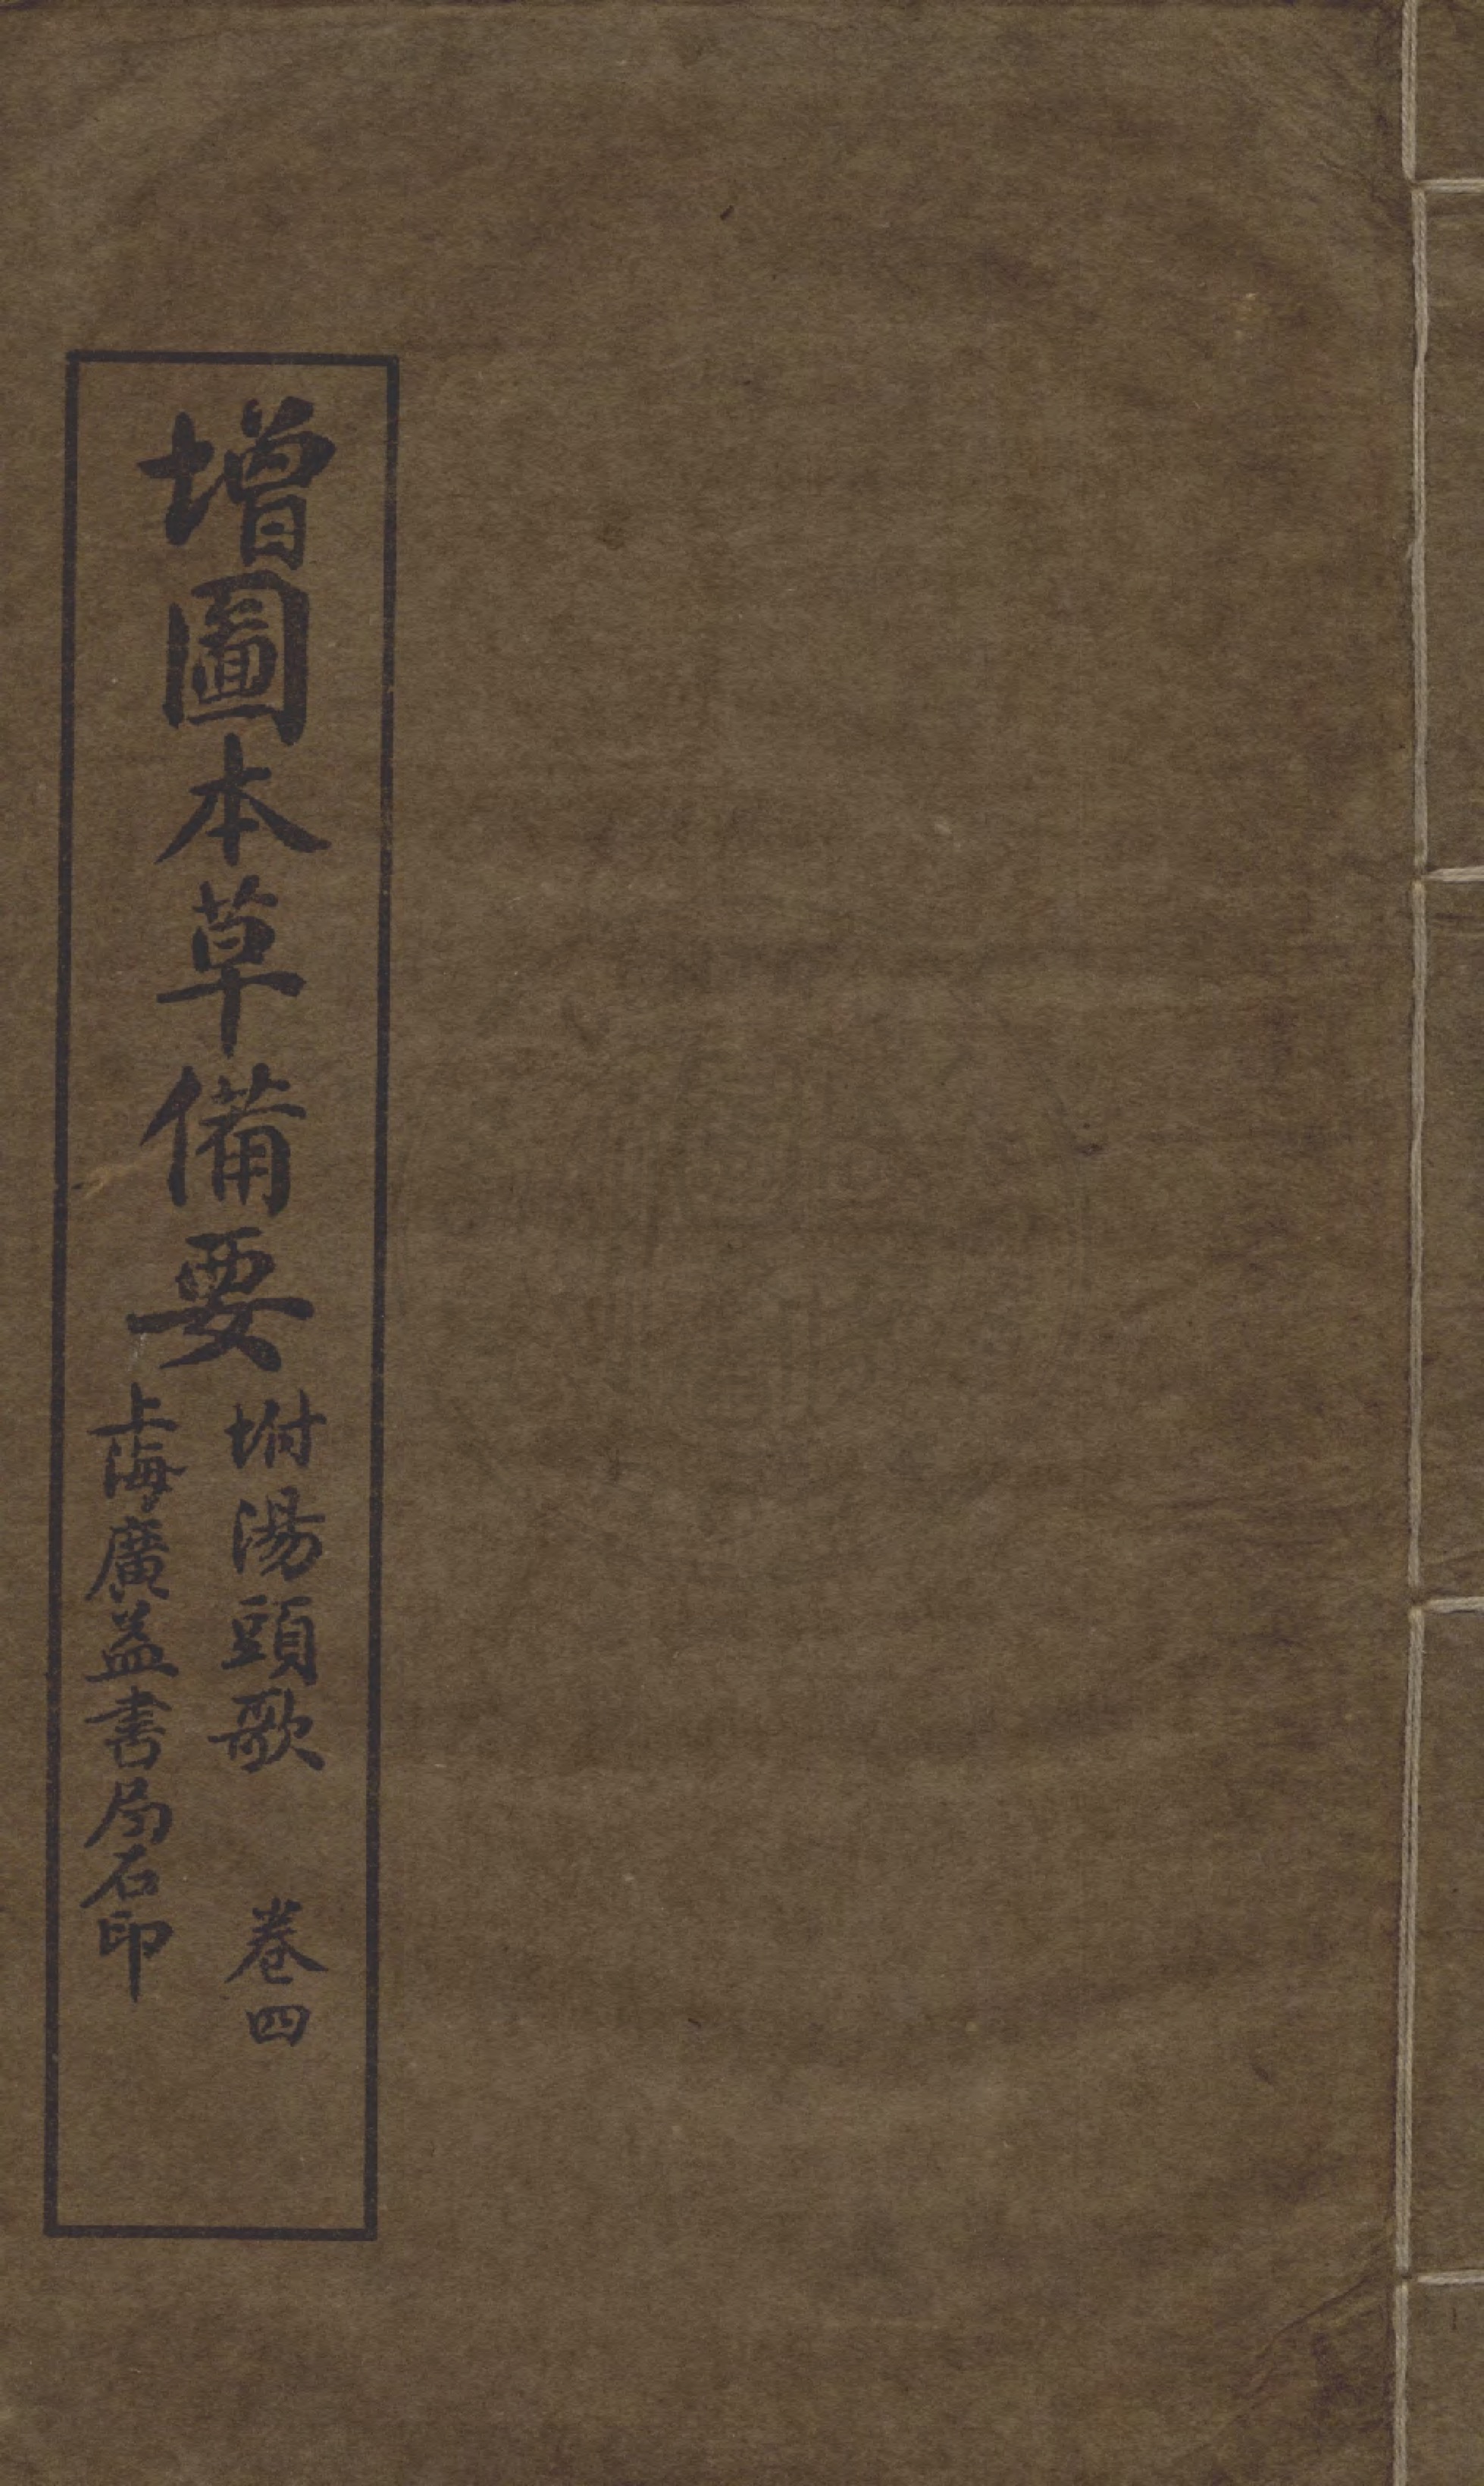 增圖本草備要
坿湯頭歌 卷四
上海廣益書局石印